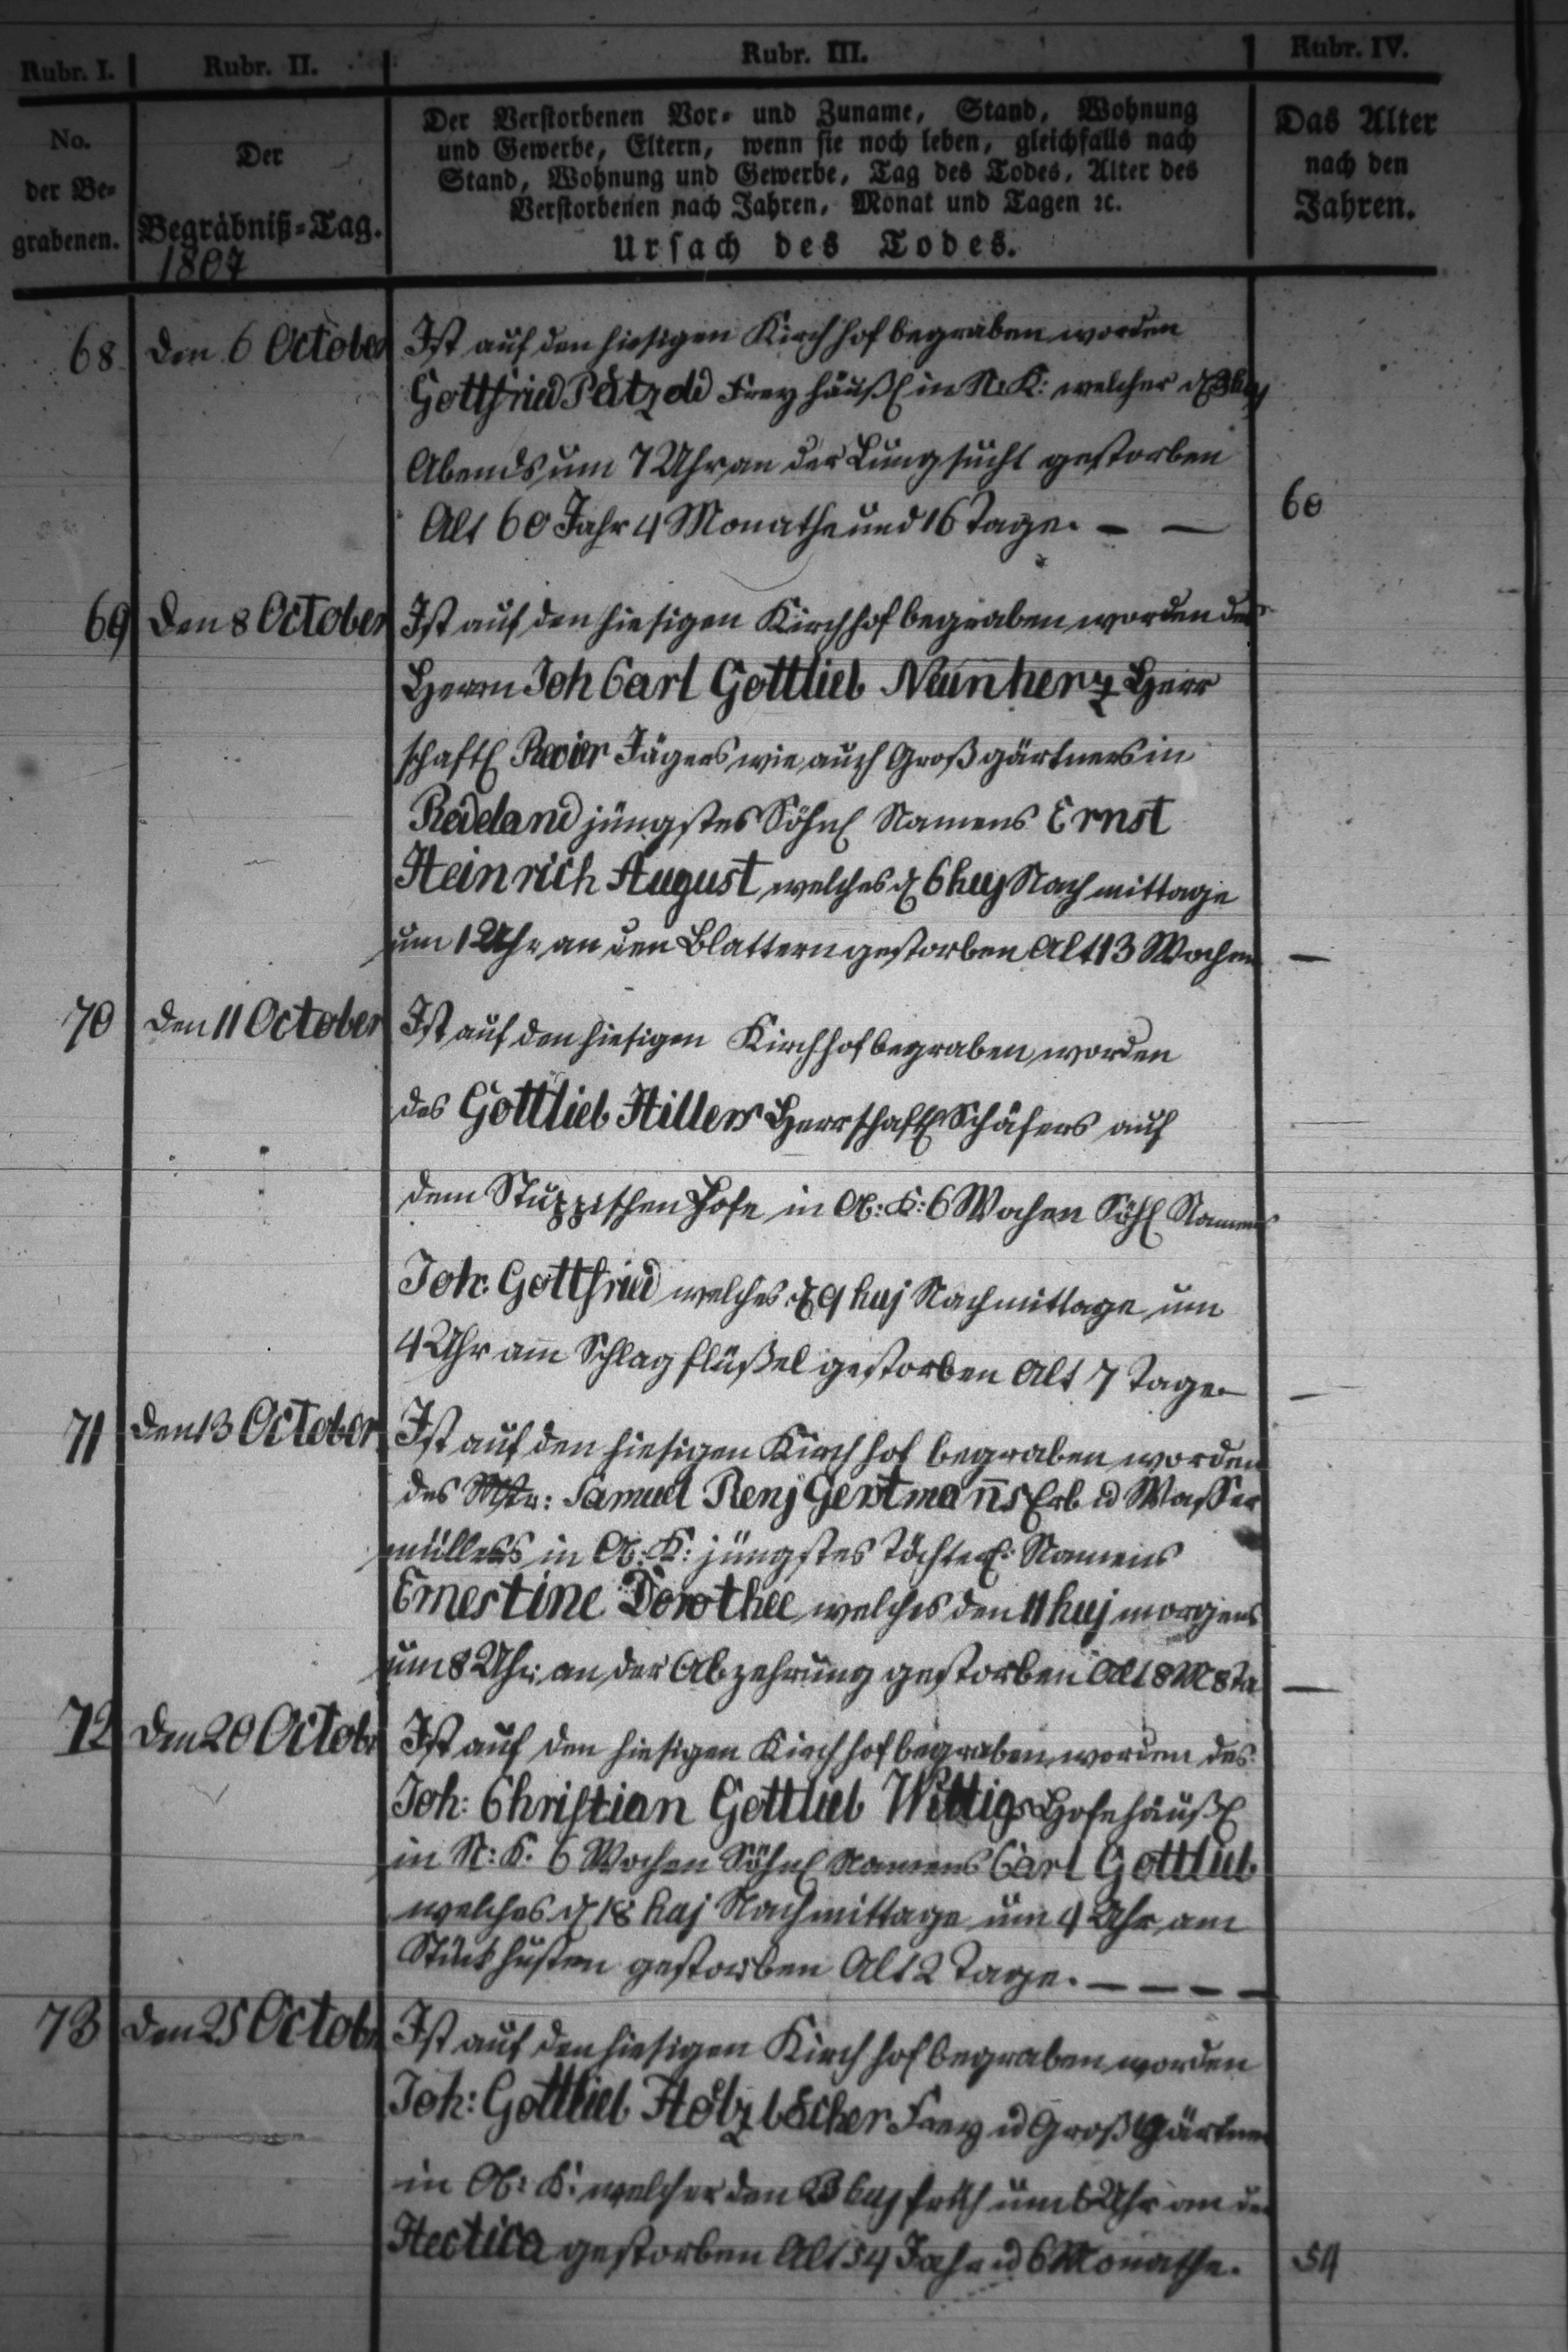 Rubr. I. Rubr. II. Rubr. III. Rubr. IV.
No.
der Be-
grabenen.
Der
Begräbniß-Tag.
1807
Der Verstorbenen Vor- und Zuname, Stand, Wohnung
und Gewerbe, Eltern, wenn sie noch leben, gleichfalls nach
Stand, Wohnung und Gewerbe, Tag des Todes, Alter des
Verstorbenen nach Jahren, Monat und Tagen ꝛc.
Ursach des Todes.
Das Alter
nach den
Jahren.
68 den 6 October Ist auf den hiesigen Kirchhof begraben worden
Gottfried Pätzold Freyhäußl in N: K: welcher d 3 huj
Abends um 7 Uhr an der Lungsucht gestorben
Alt 60 Jahr 4 Monathe und 16 Tage. — — 60
69 den 8 October Ist auf den hiesigen Kirchhof begraben worden des
Herrn Joh Carl Gottlieb Neünherz Herr
schaftl Revier Jägers wie auch Großgärtners in
Redeland jüngstes Söhnl Namens Ernst
Heinrich August welches d 6 huj Nachmittage
um 1 Uhr an den Blattern gestorben Alt 13 Wochen —
70 den 11 October Ist auf den hiesigen Kirchhof begraben worden
des Gottlieb Hillers Herrschaftl Schäfers auf
dem Hofe in Ob: K: 6 Wochen Söhl Namens
Joh: Gottfried welches d 9 huj Nachmittage um
4 Uhr am Schlagflüßel gestorben Alt 7 Tage —
71 den 13 October Ist auf den hiesigen Kirchhof begraben worden
des Mstr: Samuel Benj Gerstman̅s Erb u Wasser
müllers in Ob: K: jüngstes Töchterl: Namens
Ernestine Dorothee welches den 11 huj morgens
um 8 Uhr an der Abzehrung gestorben Alt 8 M 8 Ta —
72 den 20 Octobr Ist auf den hiesigen Kirchhof begraben worden des
Joh: Christian Gottlieb Wittigs Hofehäußl
in N: K. 6 Wochen Söhnl Namens Carl Gottlieb
welches d 18 huj Nachmittage um 4 Uhr am
Stickhusten gestorben Alt 2 Tage. — — — —
73 den 25 Octobr Ist auf den hiesigen Kirchhof begraben worden
Joh: Gottlieb Holzbecher Frey u Großgärtner
in Ob: K: welcher den 23 huj früh um Uhr an der
Hectica gestorben Alt 54 Jahr u 6 Monathe. 54